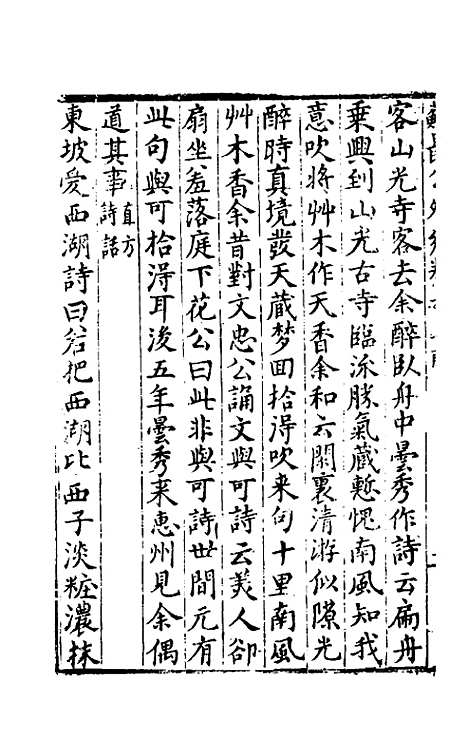 客山光寺客去余醉臥舟中曇秀作詩云扁舟
乗興到山光古寺臨流勝氣藏慙愧南風知我
意吹將艸木作天香余和云閙裏清游似隙光
醉時真境發天藏梦回拾得吹来句十里南風
艸木香余昔對文忠公誦文與可詩云美人卻
扇坐羞落庭下花公曰此非與可詩世間元有
此句與可拾得耳後五年曇秀来惠州見余偶
道其事直方詩話
東坡愛西湖詩曰若把西湖比西子淡粧濃抹